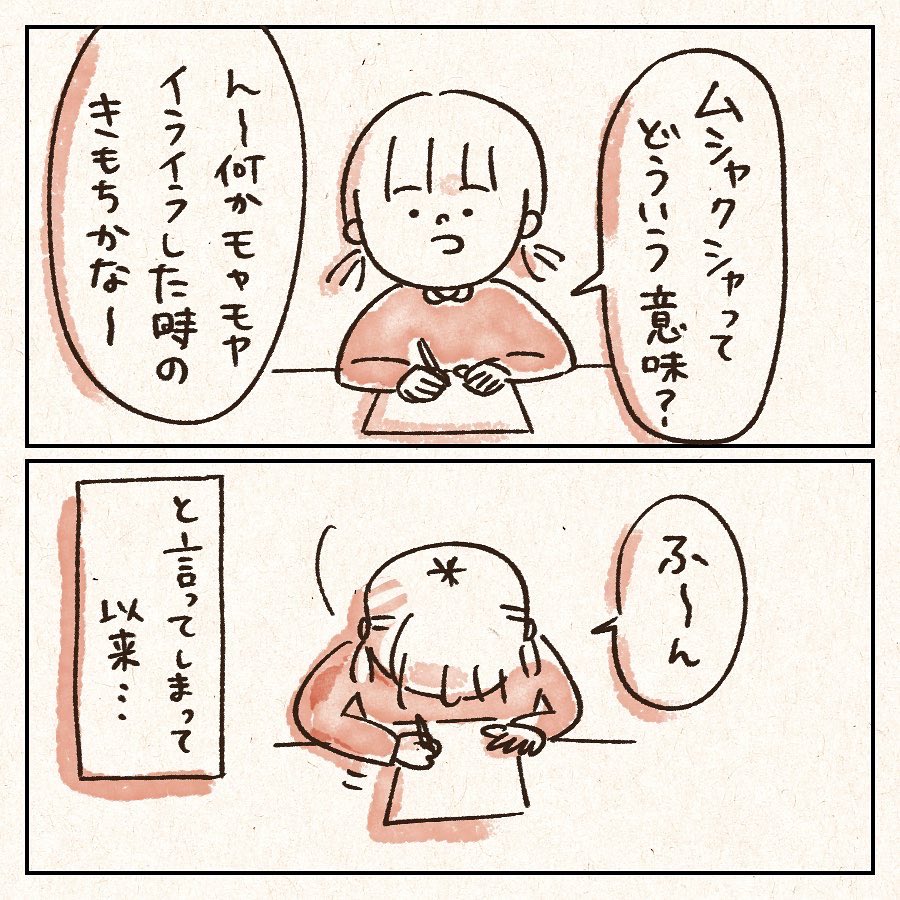 ムシャクシャって
どういう意味?
ん〜何かモャモャ
イライラした時の
きもちかな〜
ふ〜ん
と言ってしまって
以来…